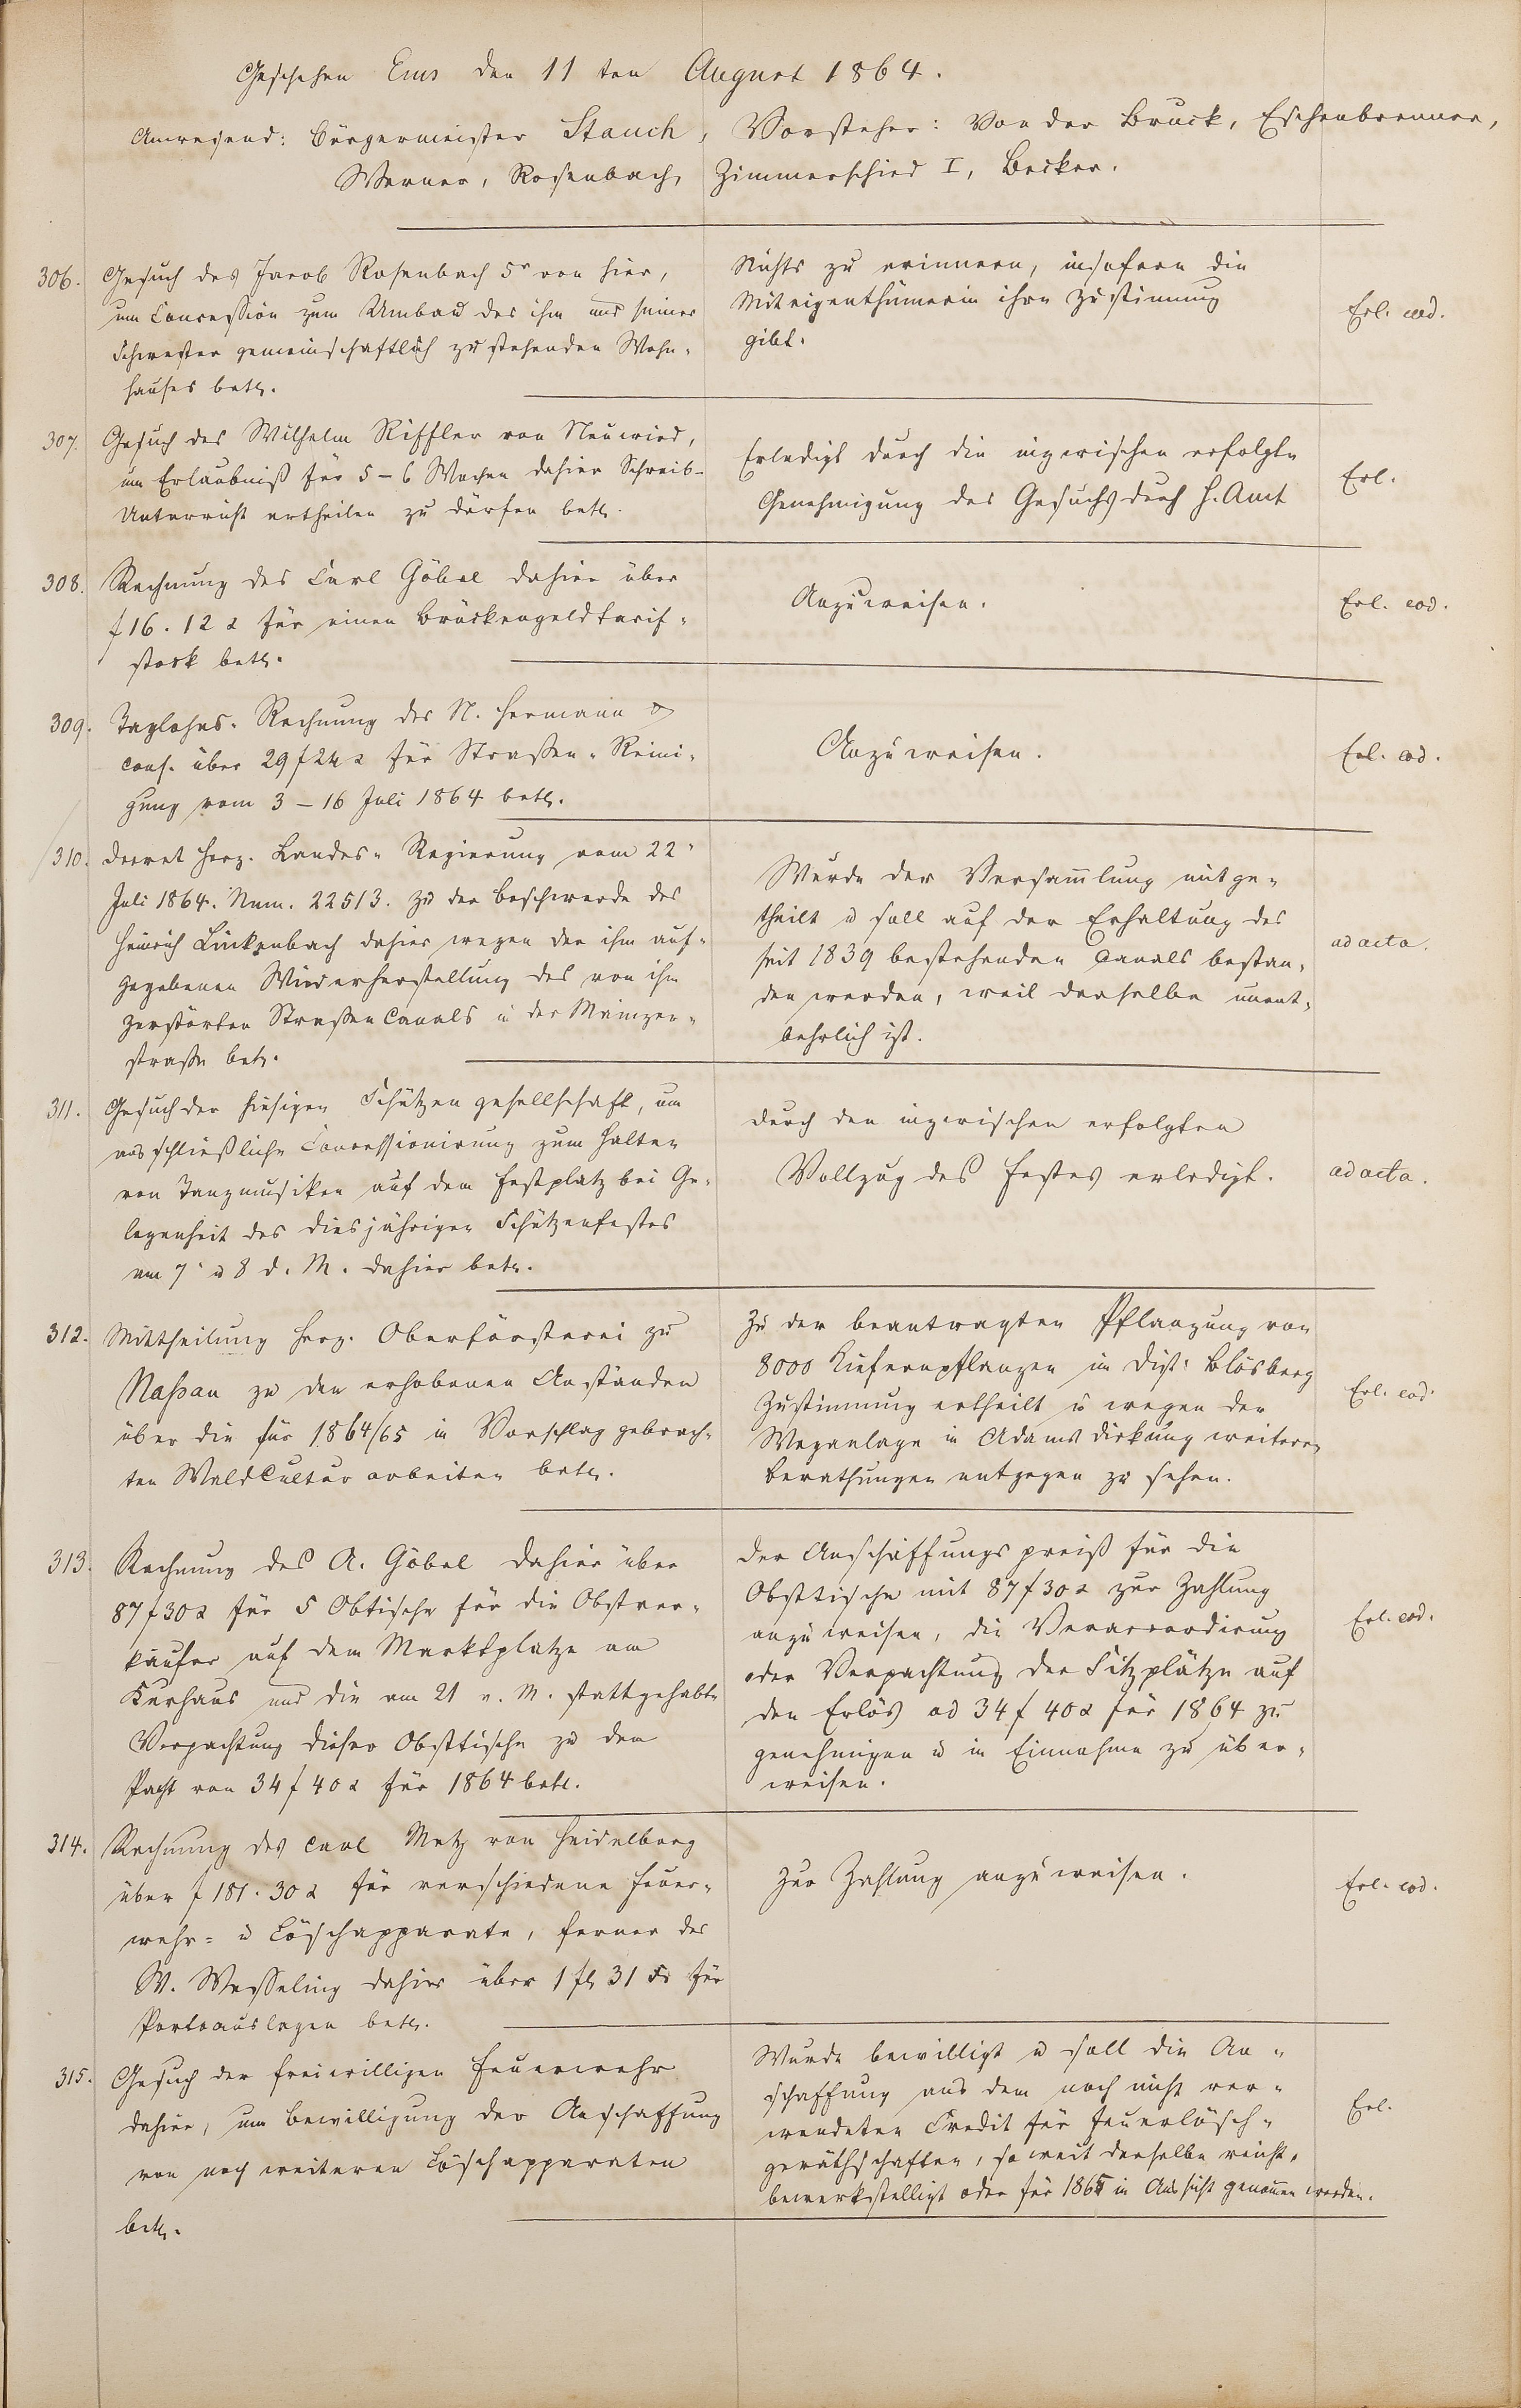 Geschehen Ems den 11ten August 1864.
Anwesend: Bürgermeister Stauch, Vorsteher: Von der Bruck, Eschenbrenner,
Werner, Rosenbach, Zimmerschied I, Becker.
306. Gesuch des Jacob Rosenbach 5r von hier,
um Concession zum Umbau des ihm und seiner
Schwester gemeinschaftlich zustehenden Wohn-
hauses betr.
Nichts zu erinnern, insofern die
Miteigenthümerin ihre Zustimmung
gibt.
Erl. eod.
307. Gesuch des Wilhelm Riffler von Neuwied,
um Erlaubniß für 5-6 Wochen dahier Schreib-
Unterricht ertheilen zu dürfen betr.
Erledigt durch die inzwischen erfolgte
Genehmigung des Gesuchs durch H. Amt
Erl.
308. Rechnung des Carl Göbel dahier über
f 16. 12 x für einen Brückengeldtarif-
stock betr.
Anzuweisen.
Erl. eod.
309. Taglohns-Rechnung des N. Hermann &
cons. über 29 f 24 x für Straßen-Reini-
gung vom 3-16 Juli 1864 betr.
Anzuweisen.
Erl. eod.
310. Decret Herz. Landes-Regierung vom 22r
Juli 1864. Num. 22513. zu der Beschwerde des
Heinrich Linkenbach dahier wegen der ihm auf-
gegebenen Wiederherstellung des von ihm
zerstörten Straßen Canals in der Mainzer-
straße betr.
Wurde der Versammlung mitge-
theilt u soll auf der Erhaltung des
seit 1839 bestehenden Canals bestan-
den werden, weil derselbe unent-
behrlich ist.
ad acta.
311. Gesuch der hiesigen Schützengesellschaft, um
ausschließliche Concessionirung zum Halten
von Tanzmusiken auf dem Festplatz bei Ge-
legenheit des diesjährigen Schützenfestes
am 7r u 8 d. M. dahier betr.
Durch den inzwischen erfolgten
Vollzug des Festes erledigt.
ad acta.
312. Mittheilung Herz. Oberförsterei zu
Nassau zu den erhobenen Anständen
über die für 1864/65 in Vorschlag gebrach-
ten WaldCulturarbeiten betr.
Zu der beantragten Pflanzung von
8000 Kiefernpflanzen im Dist: Blösberg
Zustimmung ertheilt u wegen der
Weganlage in Adams dirkung weiteren
Berathungen entgegen zu sehen.
Erl. eod.
313. Rechnung des A. Göbel dahier über
87 f 30 x für 5 Obtische für die Obstver-
käufer auf dem Marktplatze am
Kurhaus und die am 21 v. M. stattgehabte
Verpachtung dieser Obsttische zu dem
Pacht von 34 f 40 x für 1864 betr.
Der Anschaffungspreiß für die
Obsttische mit 87 f 30 x zur Zahlung
anzuweisen, die Veraccordirung
oder Verpachtung der Sitzplätze auf
den Erlös ad 34 f 40 x für 1864 zu
genehmigen u in Einnahme zu über-
weisen.
Erl. eod.
314. Rechnung des Carl Metz von Heidelberg
über f 181. 30 x für verschiedene Feuer-
wehr- u Löschapparate, ferner des
W. Wesseling dahier über 1 fl 31 Xr für
Portoauslagen betr.
Zur Zahlung anzuweisen.
Erl. eod.
315. Gesuch der freiwilligen Feuerwehr
dahier, um Bewilligung der Anschaffung
von noch weiteren Löschapparaten
betr.
Wurde bewilligt u soll die An-
schaffung aus dem noch nicht ver-
wendeten Credit für Feuerlösch-
geräthschaften, so weit derselbe reicht,
bewerkstelligt oder für 1865 in Aussicht genommen werden.
Erl.